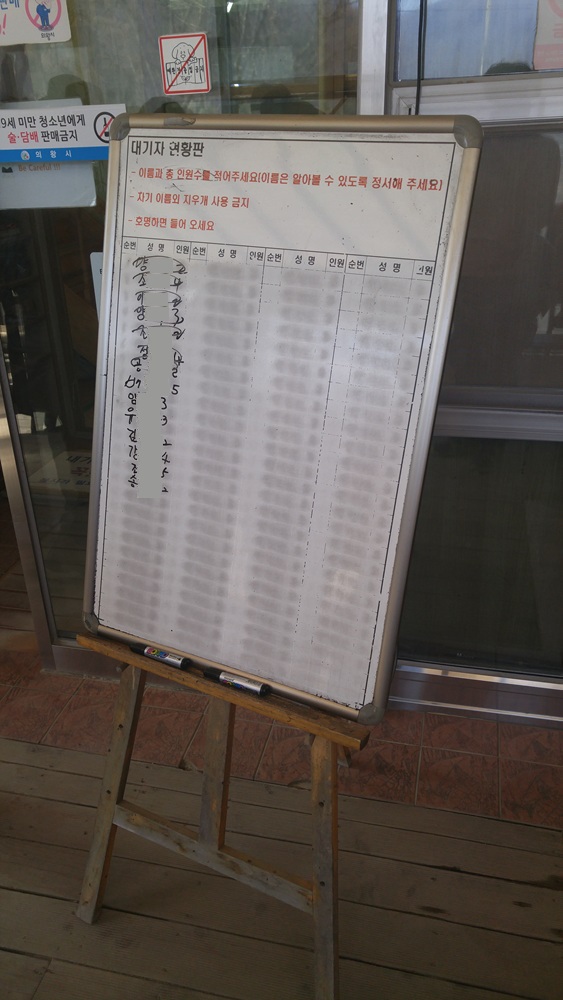 의왕시
9세 미만 청소년에게
술·담배 판매금지
의 왕 시
Be Careful !!!
대기자 현황판
- 이름과 총 인원수를 적어주세요(이름은 알아볼 수 있도록 정서해 주세요)
- 자기 이름외 지우개 사용 금지
- 호명하면 들어 오세요
순번 성 명 인원 순번 성 명 인원 순번 성 명 인원 순번 성 명 인원
양 2
조 4
이
양
순
정
5
임 3
우 3
김 2
강 4
조 5
송 2